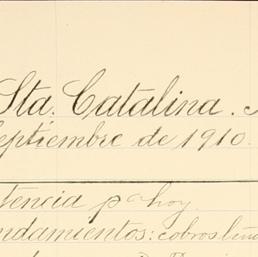 Sta. Catalina.
Septiembre de 1910.
tencia pa hoy
ndamientos: cobros